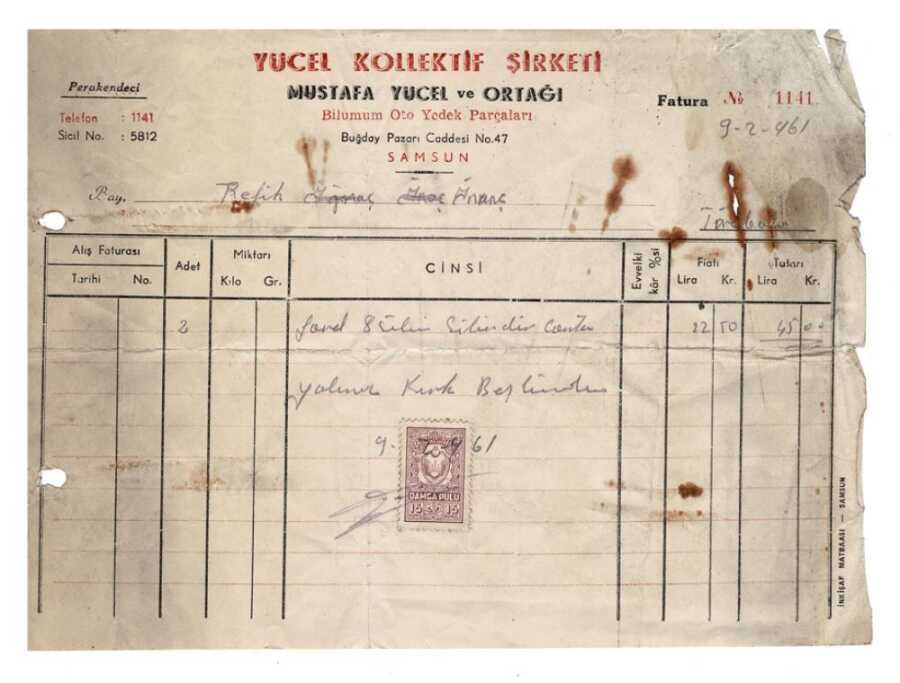 YUCEL KOLLEKTİF ŞİRKETİ
MUSTAFA YUCEL ve ORTAĞI
Bilumum Oto Yedek Parçaları
Buğday Pazarı Caddesi No.47
SAMSUN
Perakendeci
Telefon : 1141
Sicil No. : 5812
Fatura № 1141
9-2-961
Bay, Refik İnanç
Alış Faturası
Tarihi No.
Adet
Miktarı
Kilo Gr.
CİNSİ
Evvelki kâr %si
Fiatı
Lira Kr.
Tutarı
Lira Kr.
2 8 Silindir Conta 22 50 45 00
Yalnız Kırk Beş Liradır
9-2-961
DAMGA PULU
15 15
İNKİŞAF MATBAASI — SAMSUN